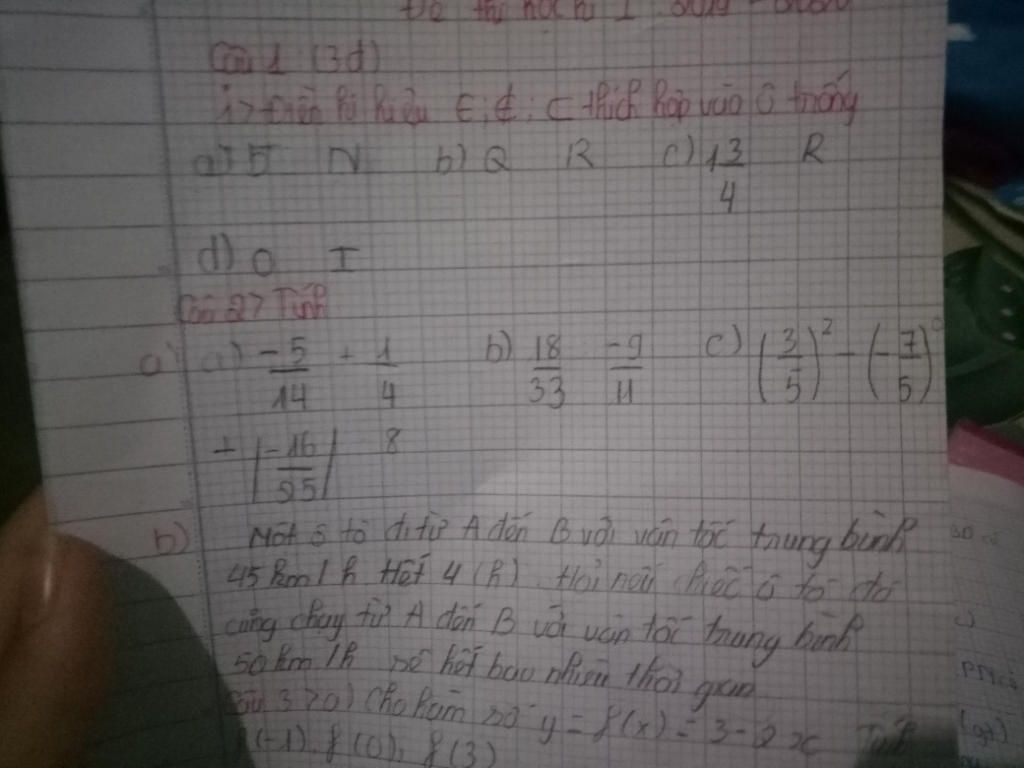 Đề thi học kì I
Câu 1 (3đ)
1> Điền kí hiệu ∈; ∉; ⊂ thích hợp vào ô trống
a) 5 N b) Q R c) 1 3/4 R
d) 0 I
Câu 2> Tính
a) a) -5/14 + 1/4 b) 18/33 -9/11 c) (3/5)² - (-7/5)⁰
+ |-16/25| 8
b) Một ô tô đi từ A đến B với vận tốc trung bình
45km/h hết 4 (h). Hỏi nếu chiếc ô tô đó
cũng chạy từ A đến B với vận tốc trung bình
50km/h sẽ hết bao nhiêu thời gian
Câu 3> a) Cho hàm số y = f(x) = 3 - 2x Tính
f(-1), f(0), f(3)